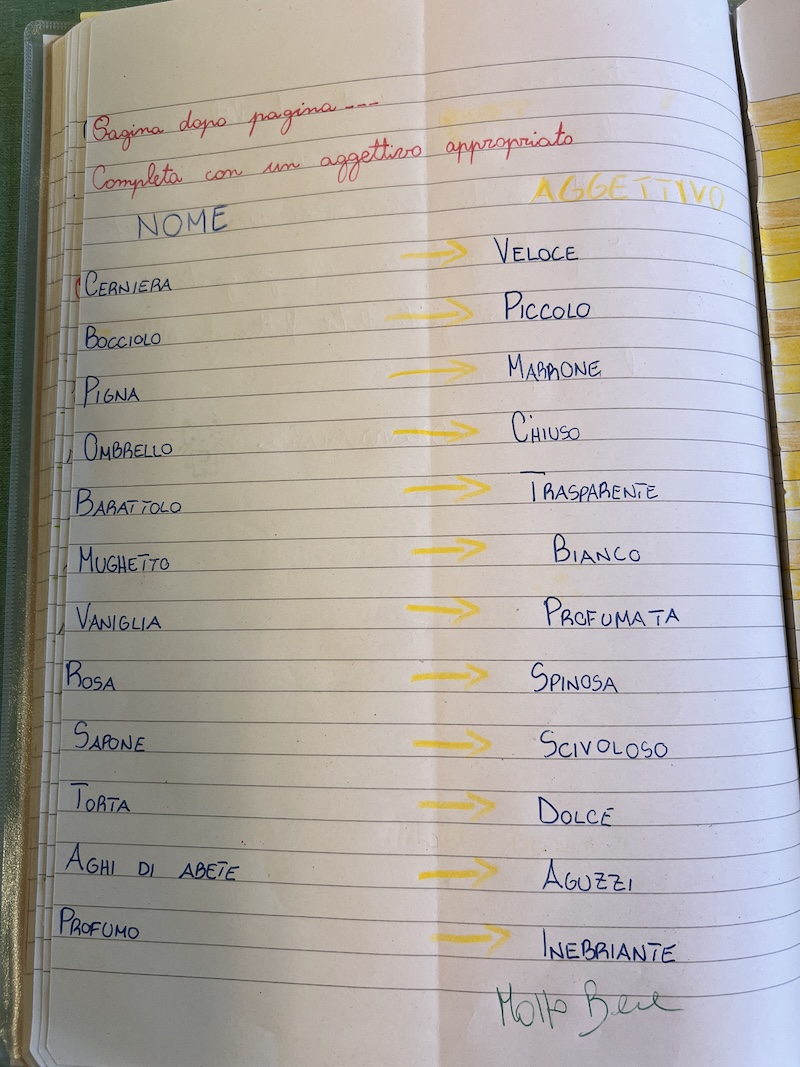 Pagina dopo pagina ---
Completa con un aggettivo appropriato
NOME AGGETTIVO
CERNIERA → VELOCE
BOCCIOLO → PICCOLO
PIGNA → MARRONE
OMBRELLO → CHIUSO
BARATTOLO → TRASPARENTE
MUGHETTO → BIANCO
VANIGLIA → PROFUMATA
ROSA → SPINOSA
SAPONE → SCIVOLOSO
TORTA → DOLCE
AGHI DI ABETE → AGUZZI
PROFUMO → INEBRIANTE
Molto Bene